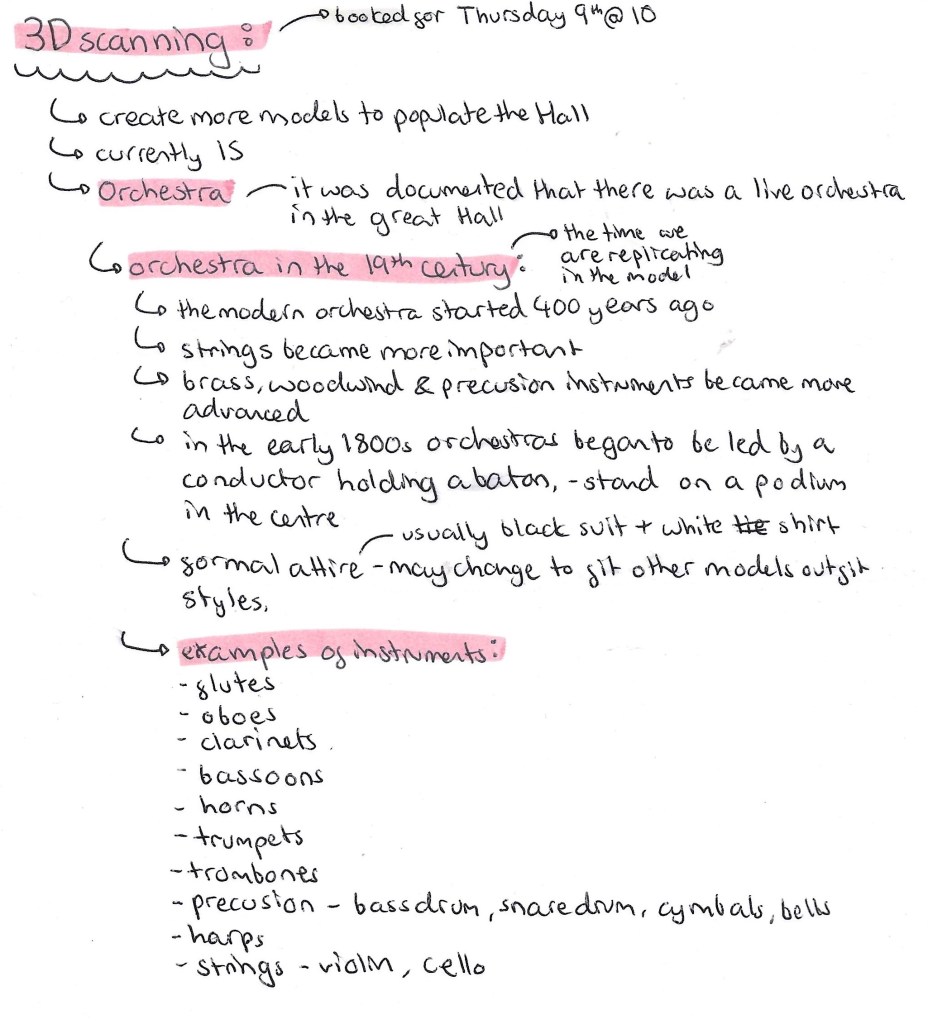 3D scanning :
booked for Thursday 9th @ 10
create more models to populate the Hall
currently 15
Orchestra
it was documented that there was a live orchestra
in the great Hall
orchestra in the 19th century :
the time we
are replicating
in the model
the modern orchestra started 400 years ago
strings became more important
brass, woodwind & precusion instruments became more
advanced
in the early 1800s orchestras began to be led by a
conductor holding a baton, - stand on a podium
in the centre
usually black suit + white tie shirt
formal attire - may change to fit other models outfit
styles.
examples of instruments :
- flutes
- oboes
- clarinets
- bassoons
- horns
- trumpets
- trombones
- precusion - bass drum, snare drum, cymbals, bells
- harps
- strings - violin, cello